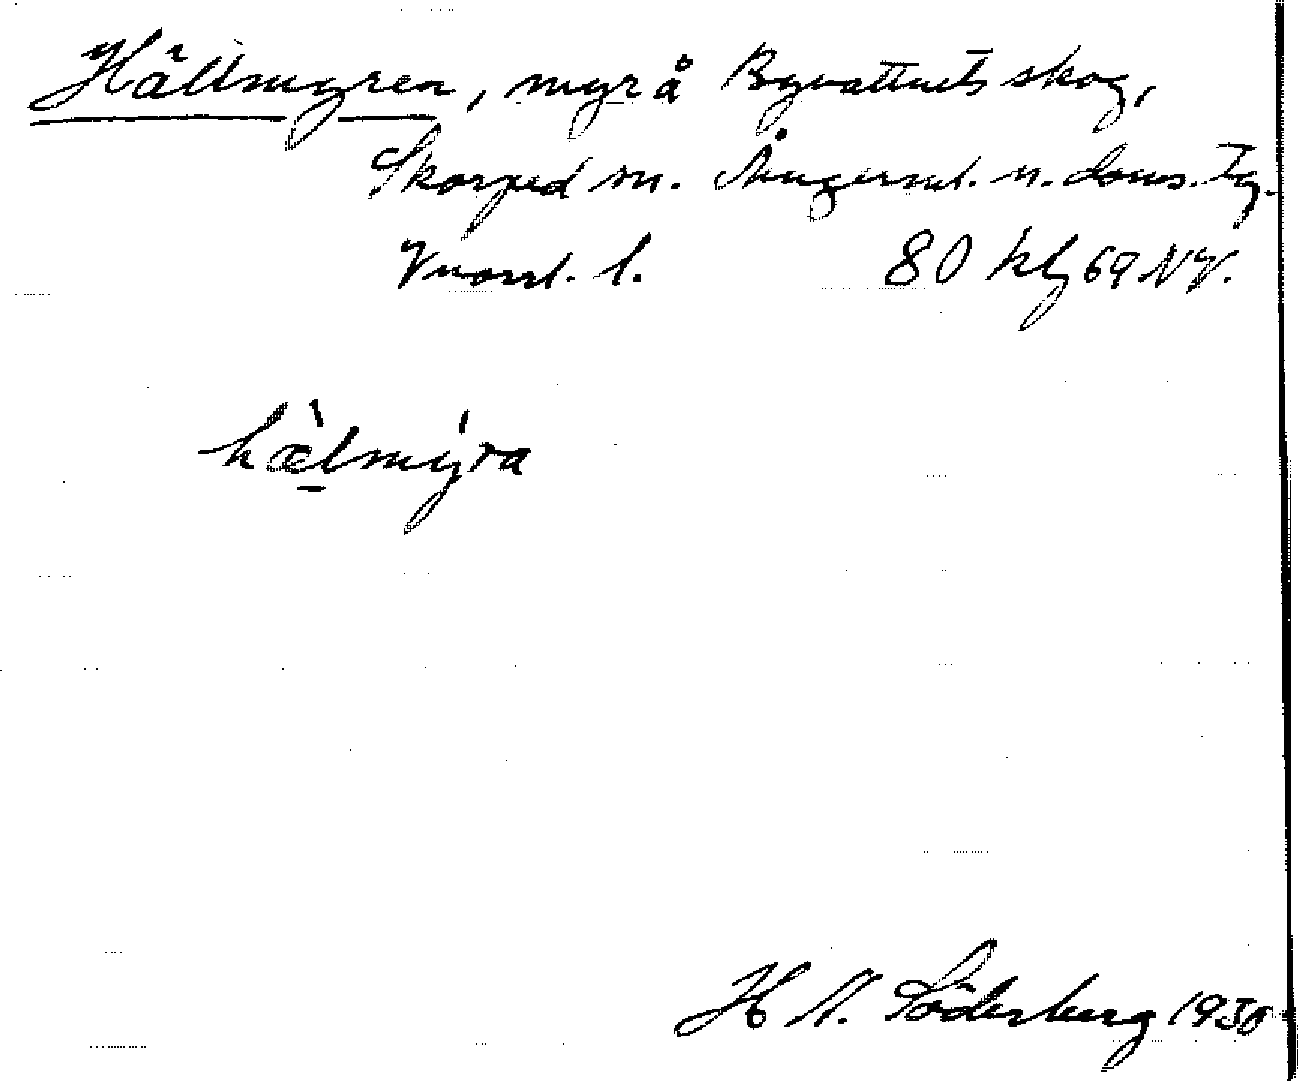 Hällmyren, myr å Byvattnets skog,
Skorped sn. Ångerml. n. doms. Tg.
Vnorrl. l. 80 kbl 69 NV.
hæ̀lmýra
H N. Söderberg 1930